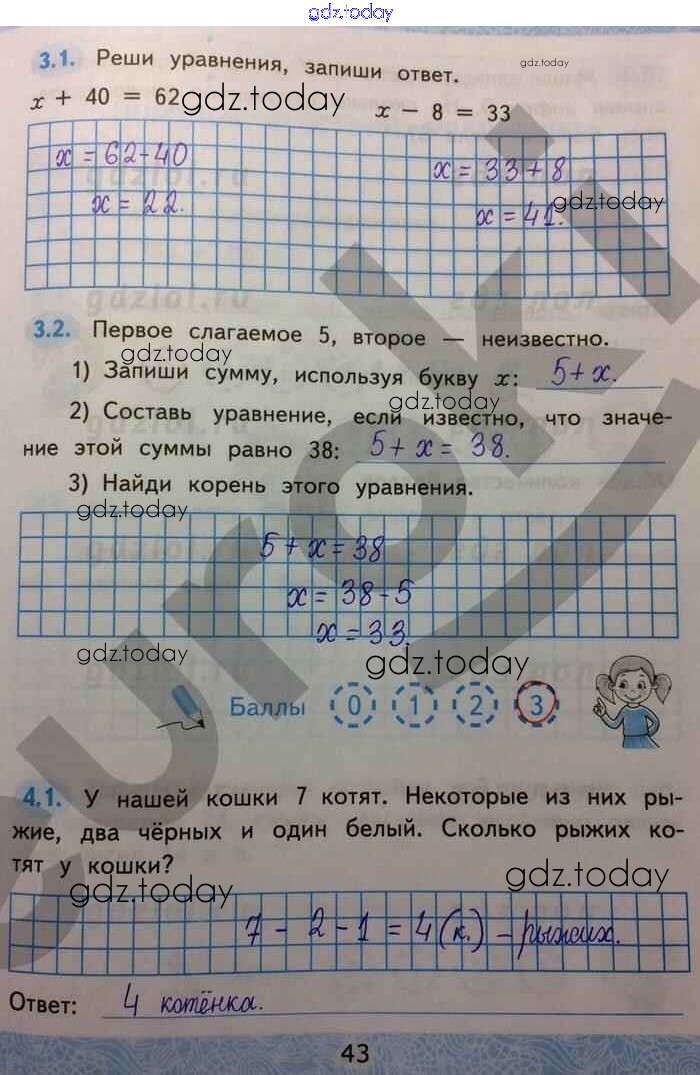 gdz.today
3.1. Реши уравнения, запиши ответ.
gdz.today
x + 40 = 62 gdz.today x − 8 = 33
x = 62-40 x = 33+8
gdz.today
x = 22. x = 41.
3.2. Первое слагаемое 5, второе — неизвестно.
gdz.today
1) Запиши сумму, используя букву x: 5+x.
gdz.today
2) Составь уравнение, если известно, что значе-
ние этой суммы равно 38: 5+x = 38.
3) Найди корень этого уравнения.
gdz.today
5+x=38
x = 38-5
x = 33.
gdz.today gdz.today
Баллы 0 1 2 3
4.1. У нашей кошки 7 котят. Некоторые из них ры-
жие, два чёрных и один белый. Сколько рыжих ко-
тят у кошки?
gdz.today gdz.today
7 - 2 - 1 = 4 (к.) - рыжих.
Ответ: 4 котёнка.
gdz.today
43